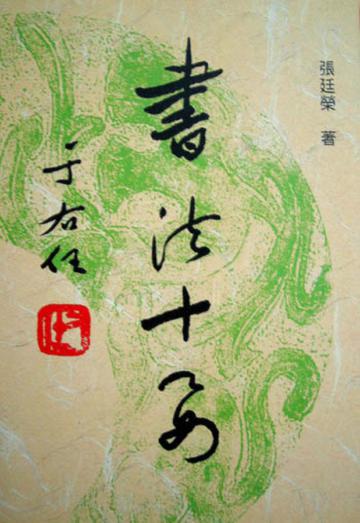 張廷榮 著
書法十要
于右任